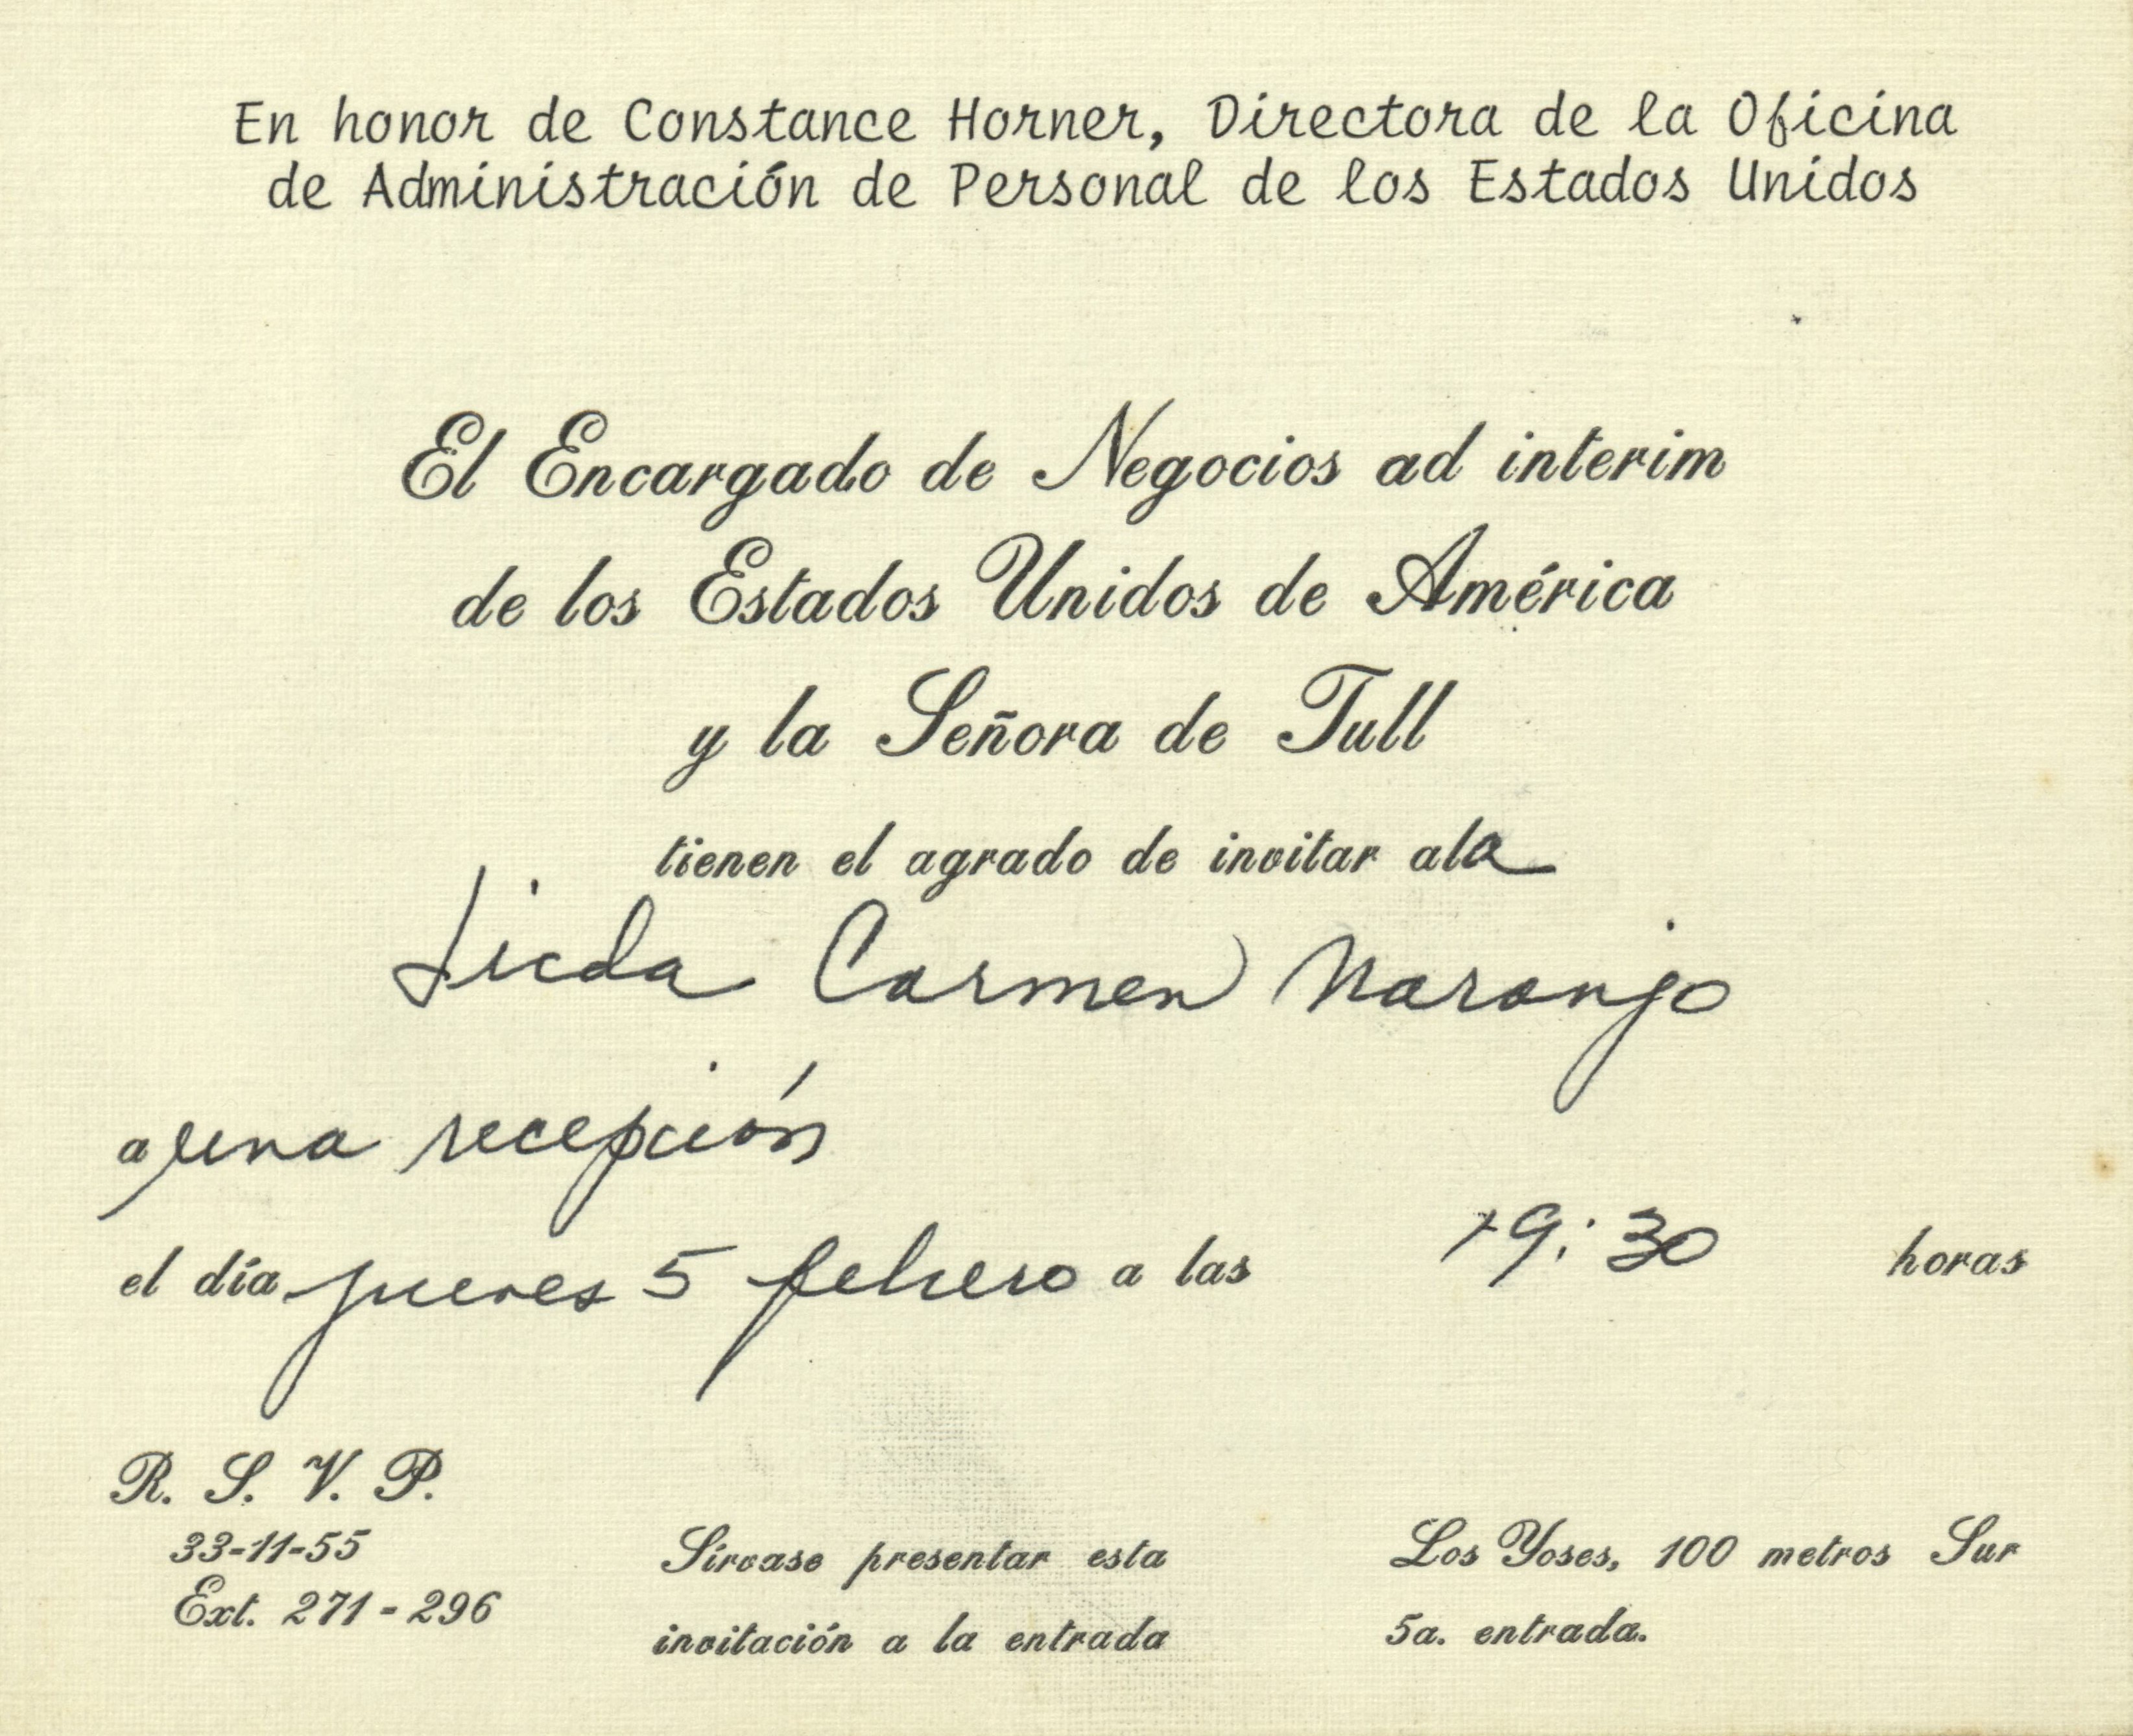 En honor de Constance Horner, Directora de la Oficina
de Administración de Personal de los Estados Unidos
El Encargado de Negocios ad interim
de los Estados Unidos de América
y la Señora de Tull
tienen el agrado de invitar a la
Licda Carmen Naranjo
a una recepción
el día jueves 5 febrero a las 19:30 horas
R. S. V. P.
33-11-55
Ext. 271 - 296
Sírvase presentar esta
invitación a la entrada
Los Yoses, 100 metros Sur
5a. entrada.